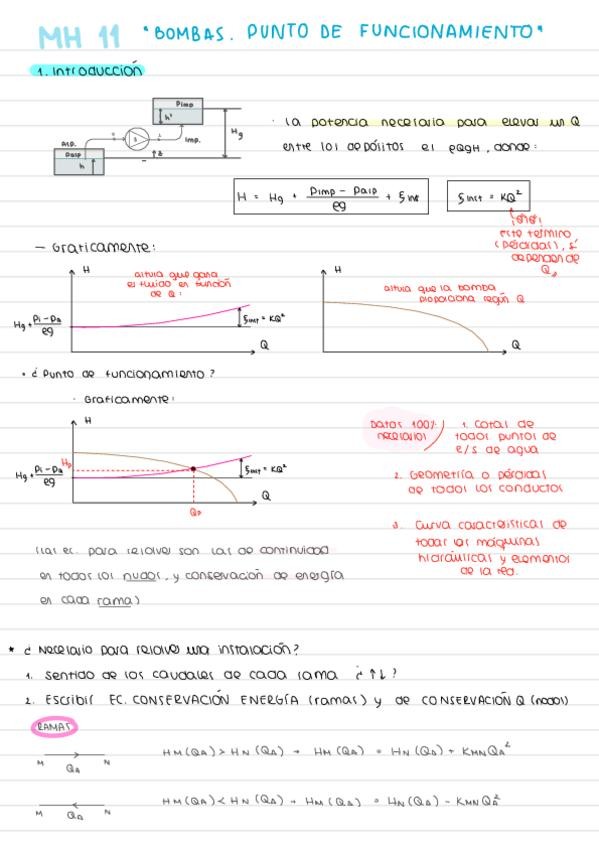 MH 11 "BOMBAS. PUNTO DE FUNCIONAMIENTO"
1. Introducción
Pimp
h'
Hg
Asp.
Imp.
Pasp
h
z
· la potencia necesaria para elevar un Q
entre los depósitos es ρQgH, donde:
H = Hg + (Pimp - Pasp)/ρg + ξinst
ξinst = KQ²
este término
(pérdidas), sí
dependen de
Q
- Gráficamente:
H
altura que gana
el fluido en función
de Q:
Hg + (Pi - Pa)/ρg
ξinst = KQ²
Q
H
altura que la bomba
proporciona según Q
Q
· ¿Punto de funcionamiento?
· Gráficamente:
H
Hg + (Pi - Pa)/ρg
Hp
ξinst = KQ²
Q
Qp
Datos 100%
necesarios
1. Cotas de
todos puntos de
e/s de agua
2. Geometría o pérdidas
de todos los conductos
3. Curva características de
todas las máquinas
hidráulicas y elementos
de la red.
(las ec. para resolver son las de continuidad
en todos los nudos, y conservación de energía
en cada rama)
* ¿Necesario para resolver una instalación?
1. Sentido de los caudales de cada rama ¿↑↓?
2. Escribir EC. CONSERVACIÓN ENERGÍA (ramas) y de CONSERVACIÓN Q (nodos)
RAMAS
M QA N
HM(QA) > HN(QA) → HM(QA) = HN(QA) + KMNQA²
M QA N
HM(QA) < HN(QA) → HM(QA) = HN(QA) - KMNQA²